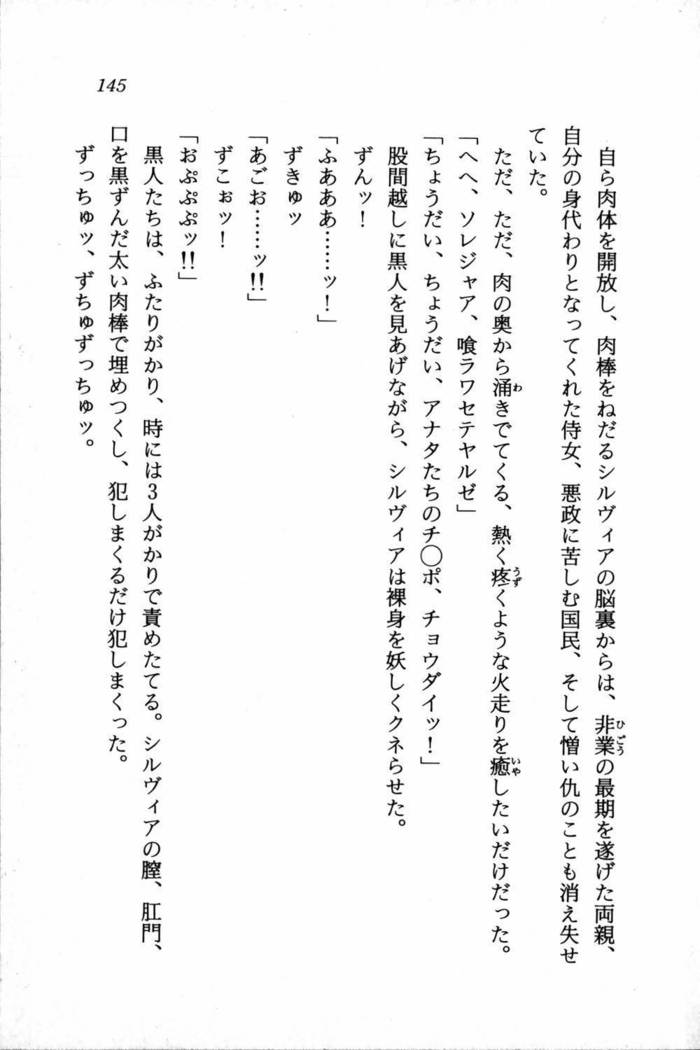 145
自ら肉体を開放し、肉棒をねだるシルヴィアの脳裏からは、非業の最期を遂げた両親、
自分の身代わりとなってくれた侍女、悪政に苦しむ国民、そして憎い仇のことも消え失せ
ていた。
ただ、ただ、肉の奥から涌きでてくる、熱く疼くような火走りを癒したいだけだった。
「へへ、ソレジャア、喰ラワセテヤルゼ」
「ちょうだい、ちょうだい、アナタたちのチ◯ポ、チョウダイッ！」
股間越しに黒人を見あげながら、シルヴィアは裸身を妖しくクネらせた。
ずんッ！
「ふあああ……ッ！」
ずきゅッ
「あごお……ッ!!」
ずこぉッ！
「おぷぷぷッ!!」
黒人たちは、ふたりがかり、時には3人がかりで責めたてる。シルヴィアの膣、肛門、
口を黒ずんだ太い肉棒で埋めつくし、犯しまくるだけ犯しまくった。
ずっちゅッ、ずちゅずっちゅッ。